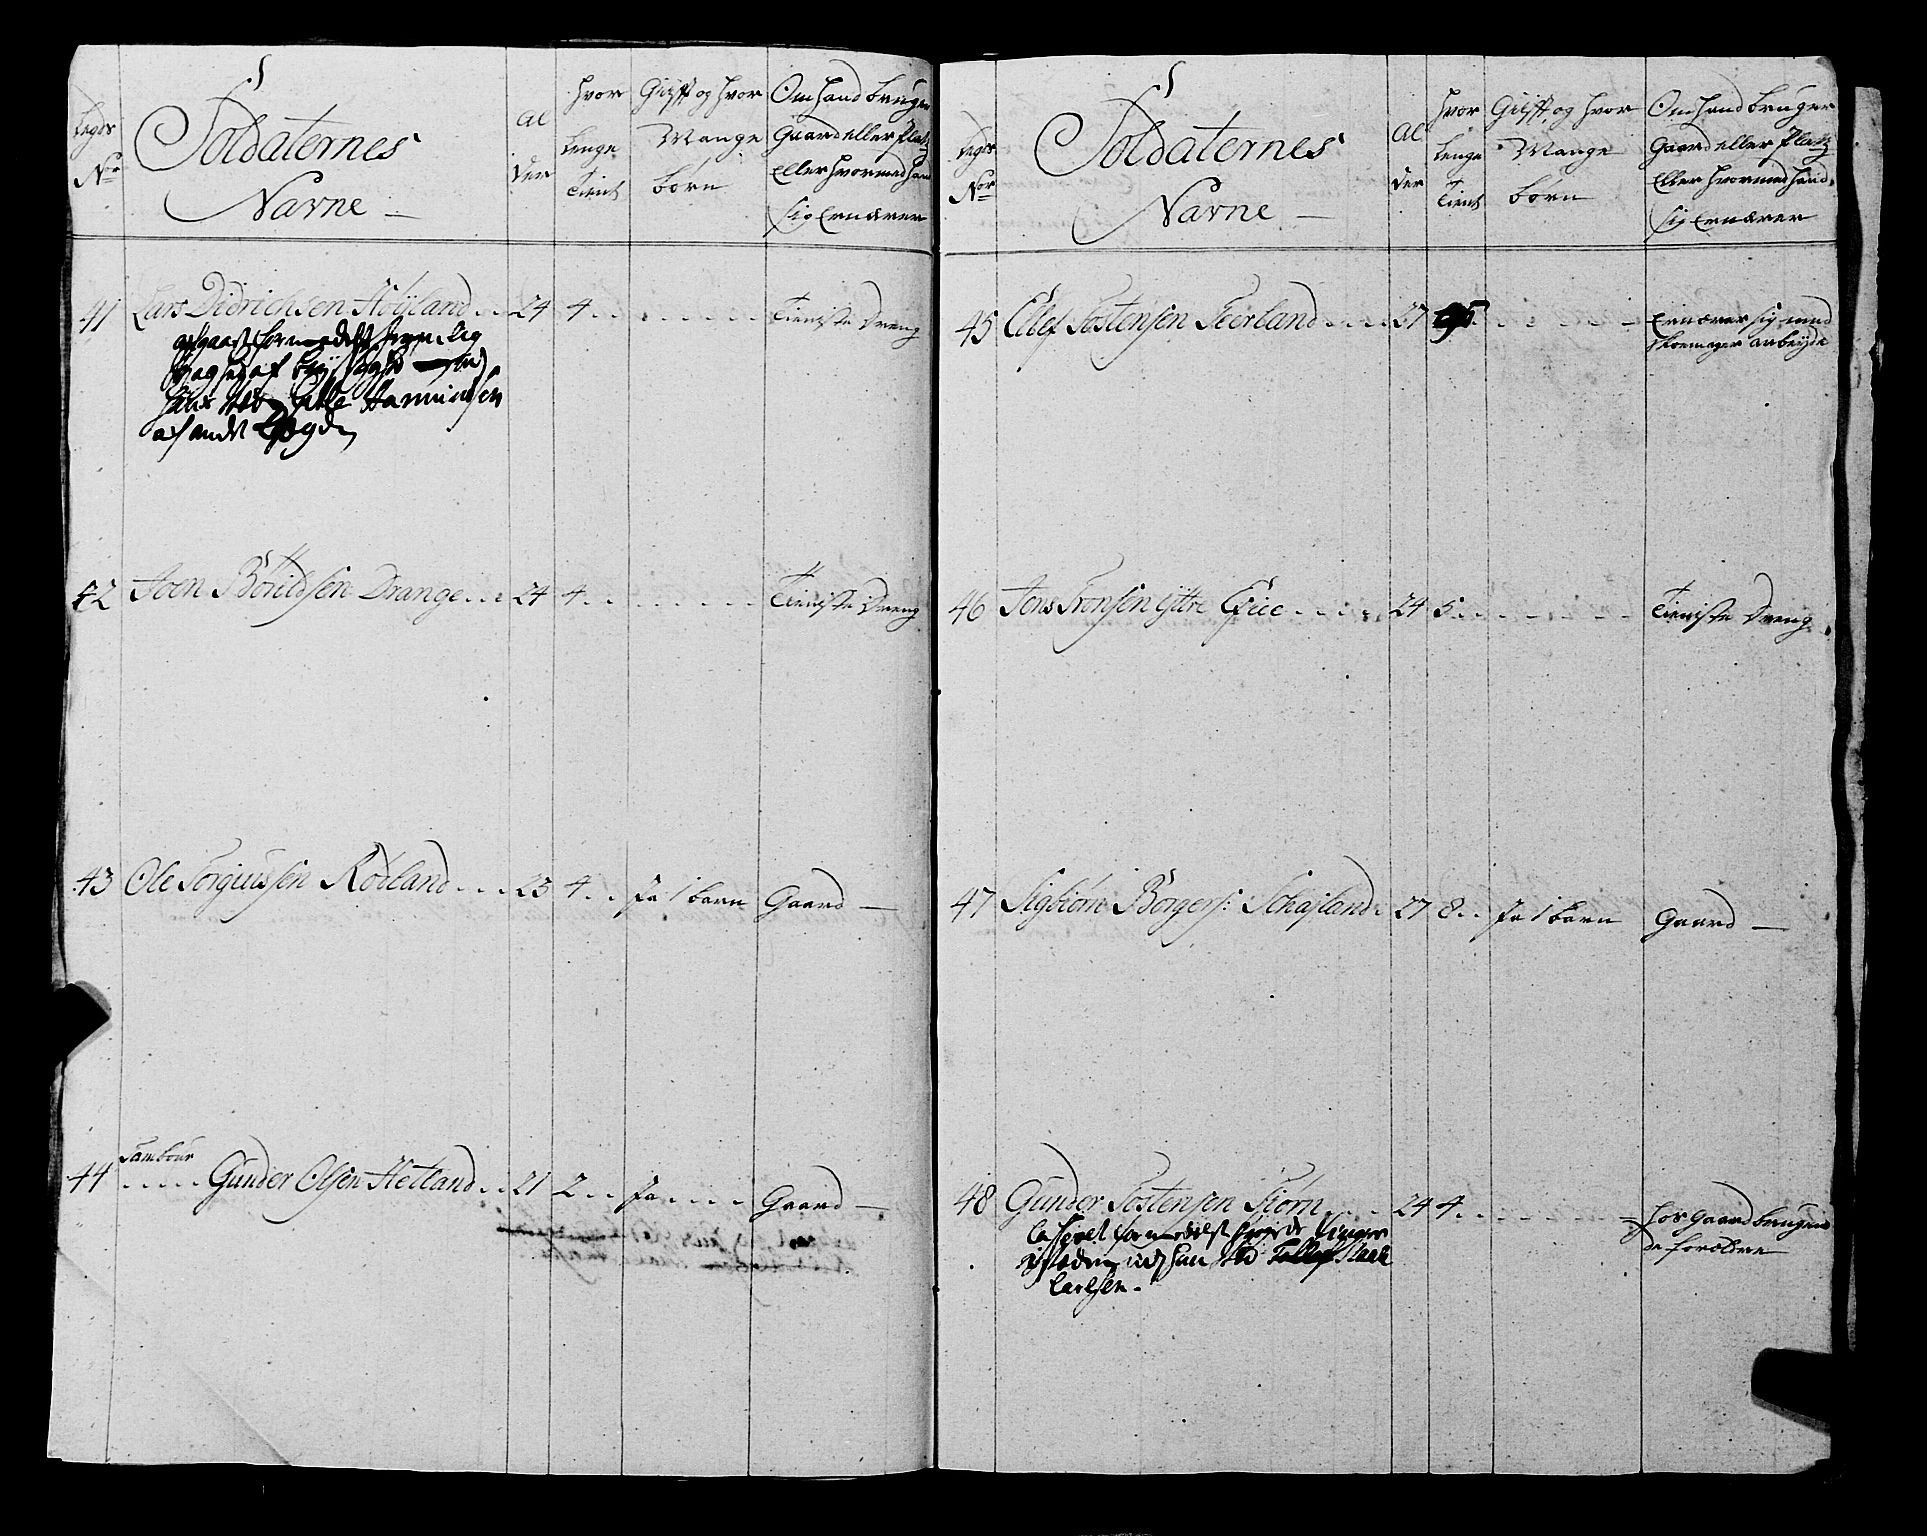 Legds
No
Soldaternes
Navne
Al
der
Hvor
Lenge
Tient
Gift og hvor
Mange
börn
Om hand bruger
Gaard eller Platz
Eller hvormed hand
sig Ernærer
41 Lars Didrichsen Höyland 24 4 Tieniste Dreng
afgaaet formedelst
af andet Lægd
42 Joen Börildsen Drange 24 4 Tieniste Dreng
43 Ole Torgiussen Rödland 23 4 Ja 1 barn Gaard
44 Tambour
Gunder Olsen Hetland 21 2 Ja Gaard
Legds
No
Soldaternes
Navne
Al
der
Hvor
Lenge
Tient
Gift, og hvor
Mange
börn
Om hand bruger
Gaard eller Platz
Eller hvormed hand
sig Ernærer
45 Ellef Tostensen Teerland 27 Ernærer sig med
skoemager arbeyde
46 Jens Tronsen yttre 24 5 Tieniste Dreng
47 Sigbiörn Börgers: 27 8 Ja 1 barn Gaard
48 Gunder Tostensen Tiörn 24 4 hos Gaard brugen
de forældre
formedelst
Carlsen